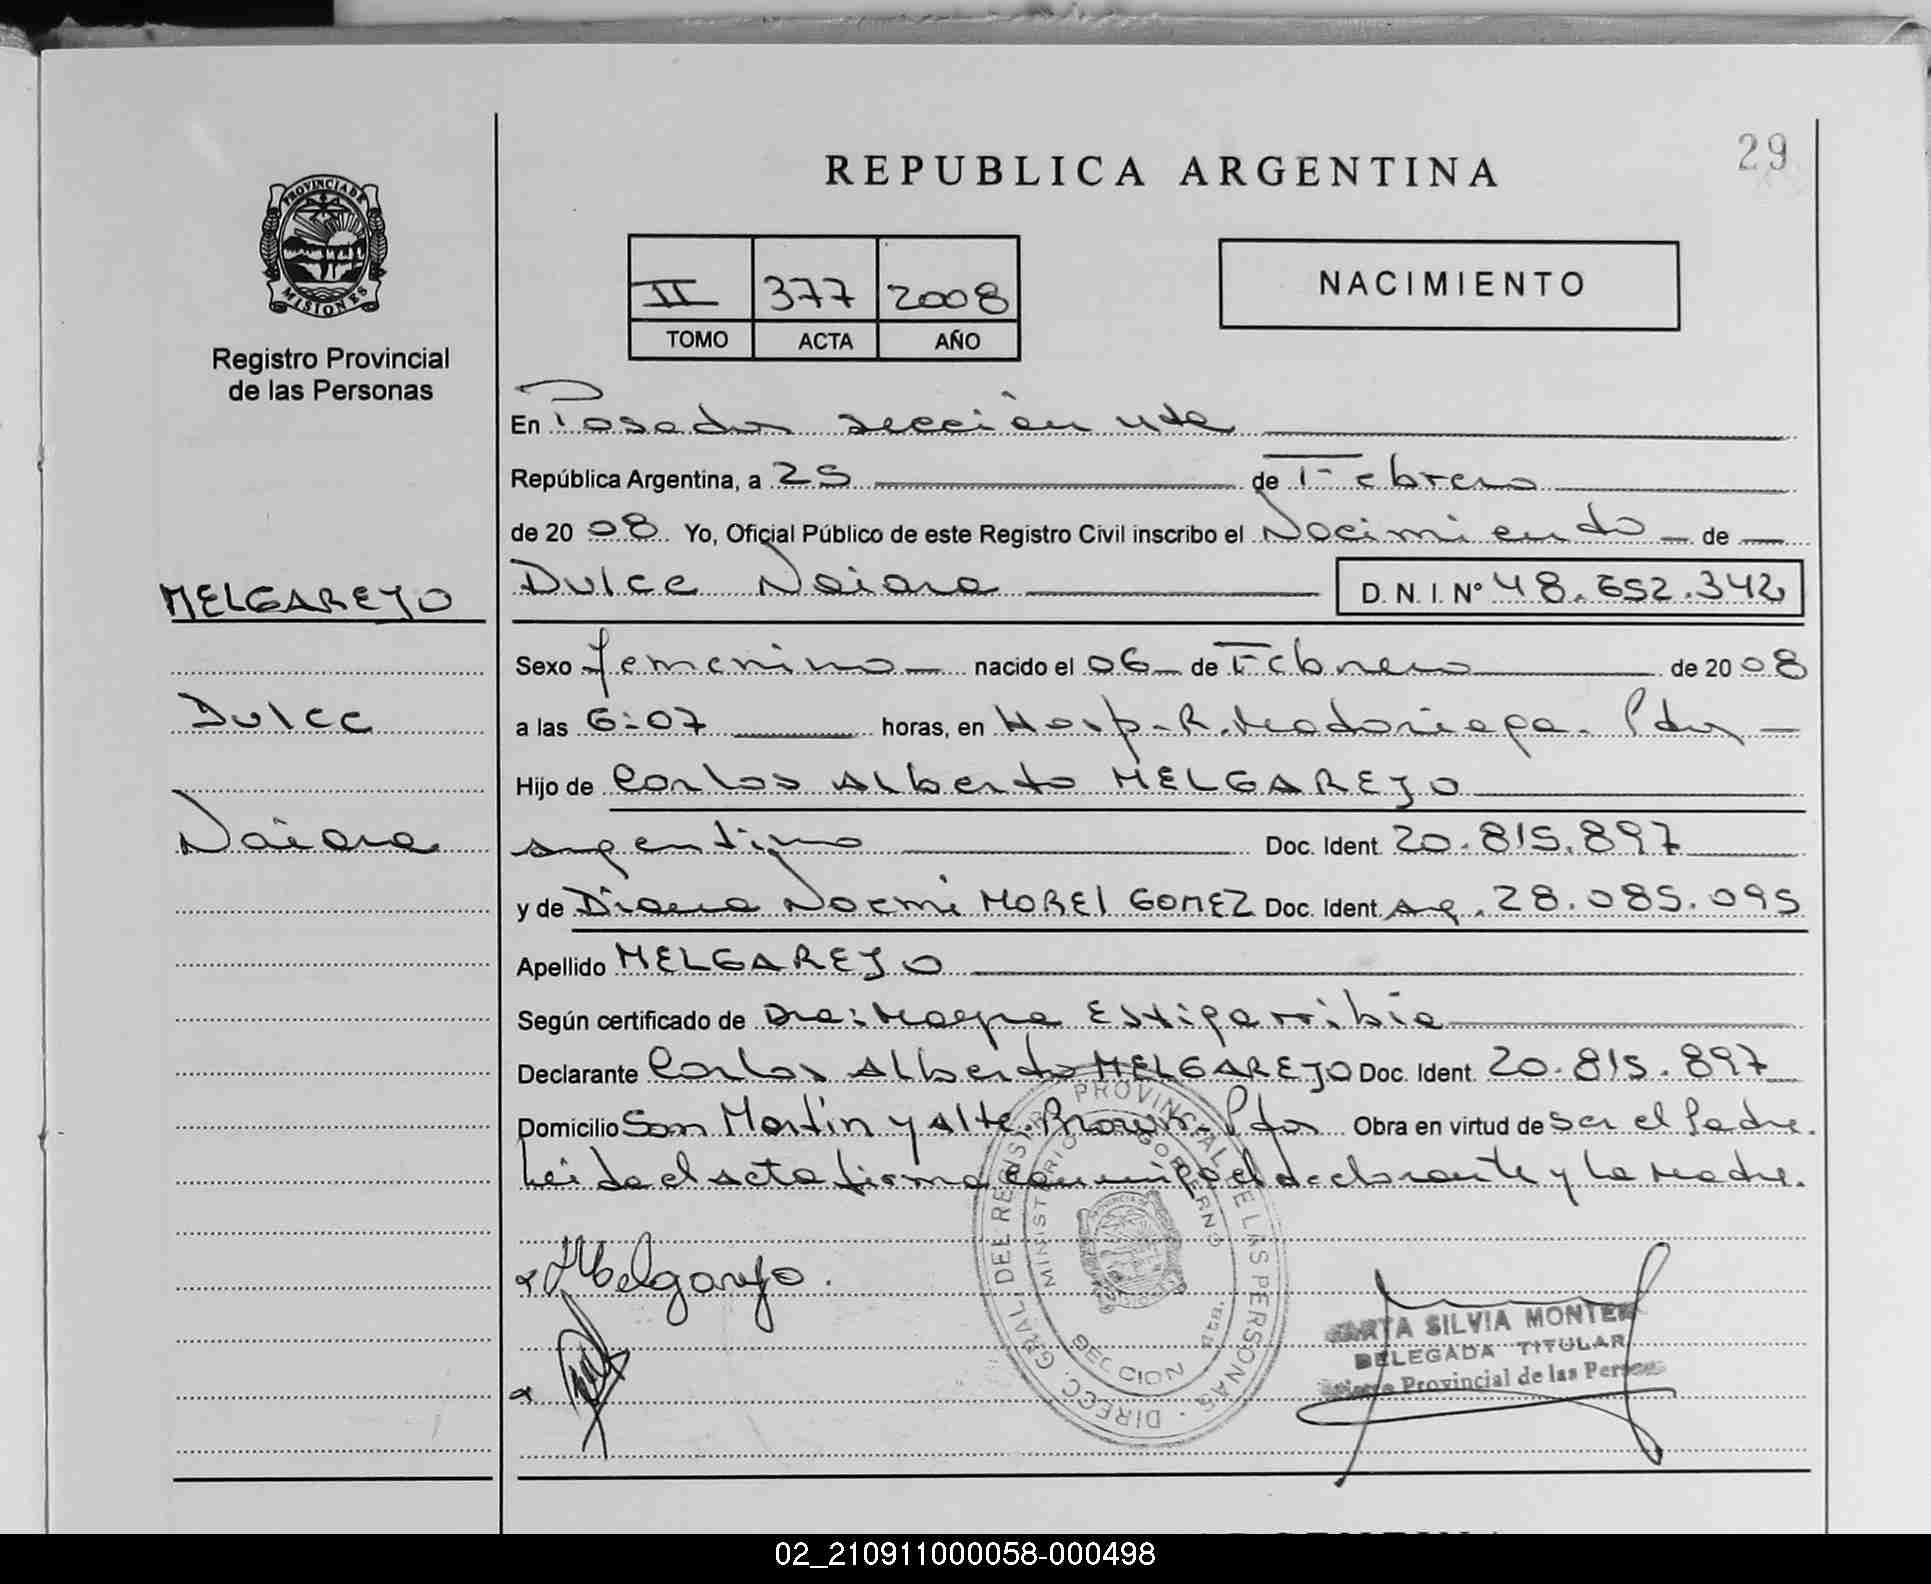 29
REPUBLICA ARGENTINA
PROVINCIA DE
MISIONES
Registro Provincial
de las Personas
II 377 2008
TOMO ACTA AÑO
NACIMIENTO
En Posadas sección 4ta
República Argentina, a 25 de Febrero
de 2008 Yo, Oficial Público de este Registro Civil inscribo el Nacimiento de
MELGAREJO
Dulce Naiara D. N. I. Nº 48.652.342
Sexo femenino nacido el 06 de Febrero de 2008
Dulce
a las 6:07 horas, en Hosp. R. Madariaga. Pdas
Hijo de Carlos Alberto MELGAREJO
Naiara
argentino Doc. Ident. 20.815.897
y de Diana Noemi MOREL GOMEZ Doc. Ident. Ag. 28.085.095
Apellido MELGAREJO
Según certificado de Dra: Magna Estigarribia
Declarante Carlos Alberto MELGAREJO Doc. Ident. 20.815.897
Domicilio San Martín y Alte. Brown. Pdas Obra en virtud de ser el Padre.
Leida el acta firma conmigo el declarante y la madre.
Melgarejo.
DIRECC. GRAL. DEL REGISTRO PROVINCIAL DE LAS PERSONAS
MINISTERIO GOBIERNO
SECCION
SILVIA
DELEGADA TITULAR
Provincial de las
02_210911000058-000498